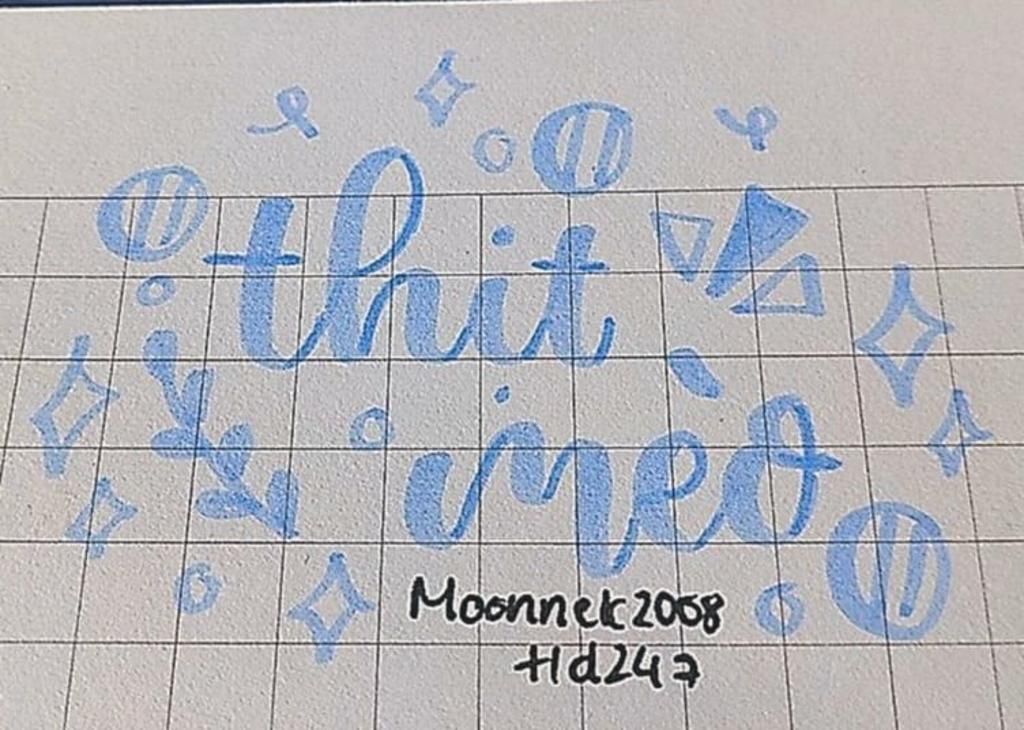 thịt
mèo
Moonnek2008
Hd247